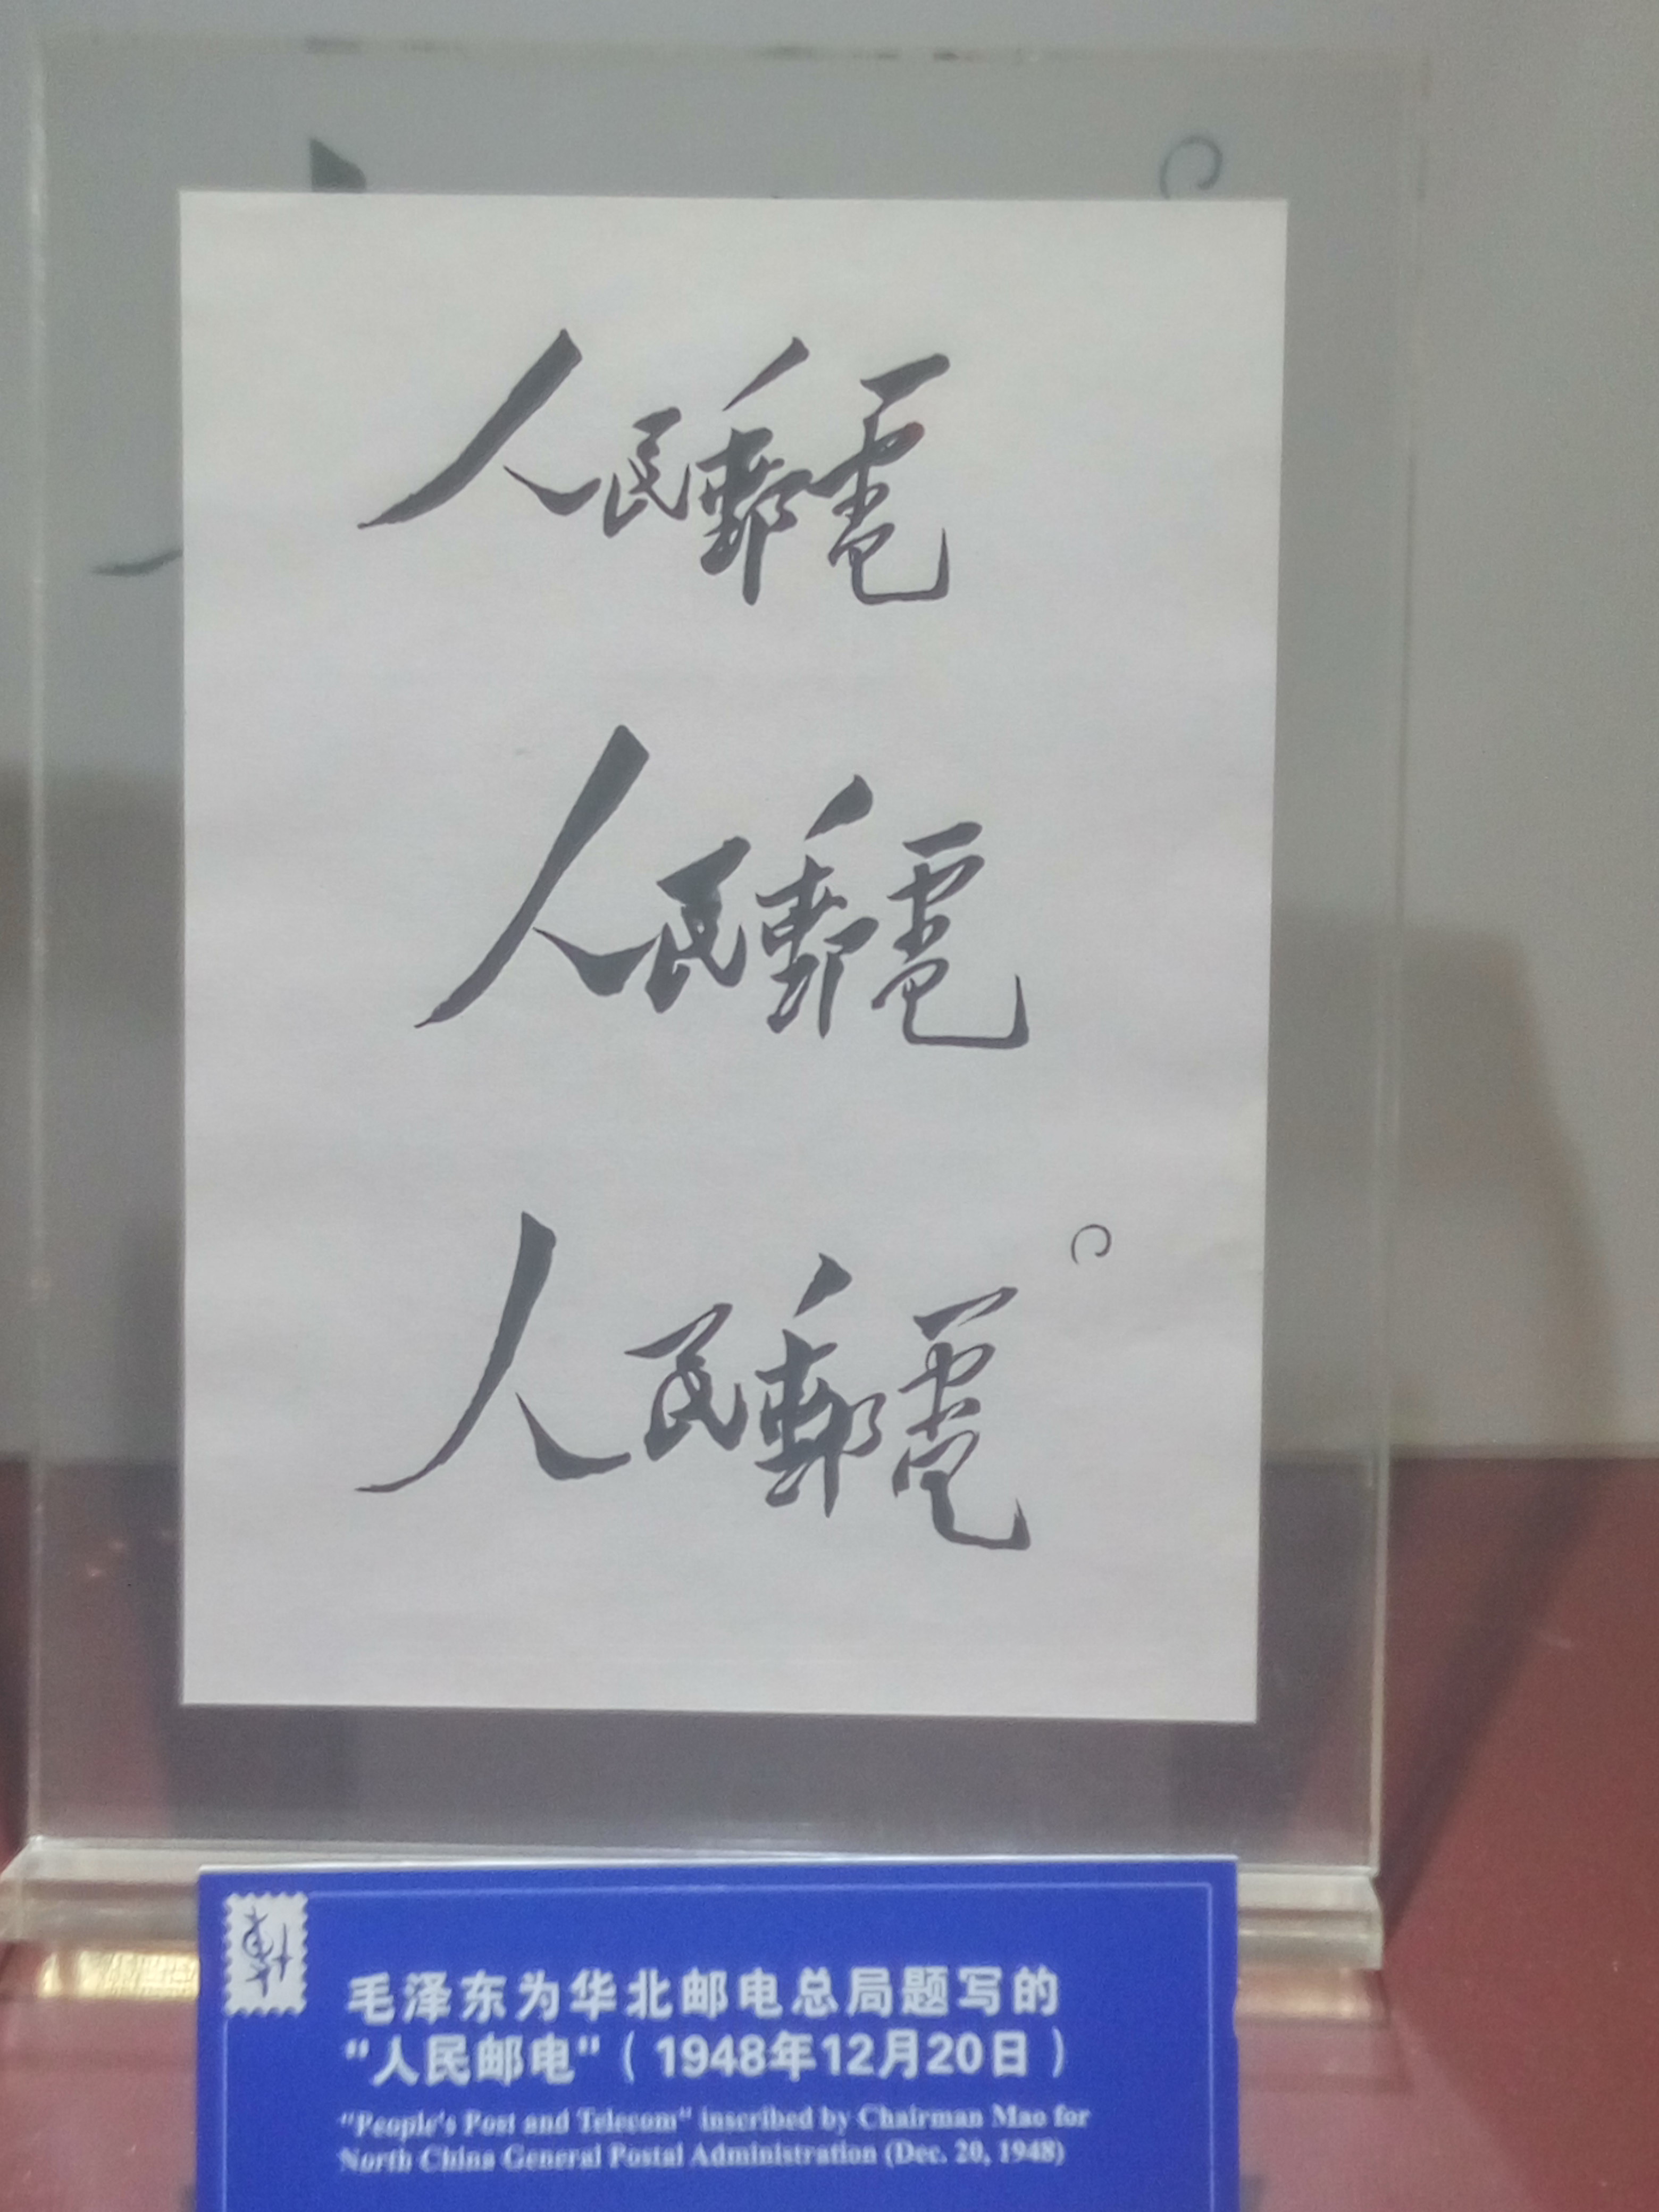 人民郵電
人民郵電
人民郵電
毛泽东为华北邮电总局题写的
“人民邮电”（1948年12月20日）
"People's Post and Telecom" inscribed by Chairman Mao for
North China General Postal Administration (Dec. 20, 1948)